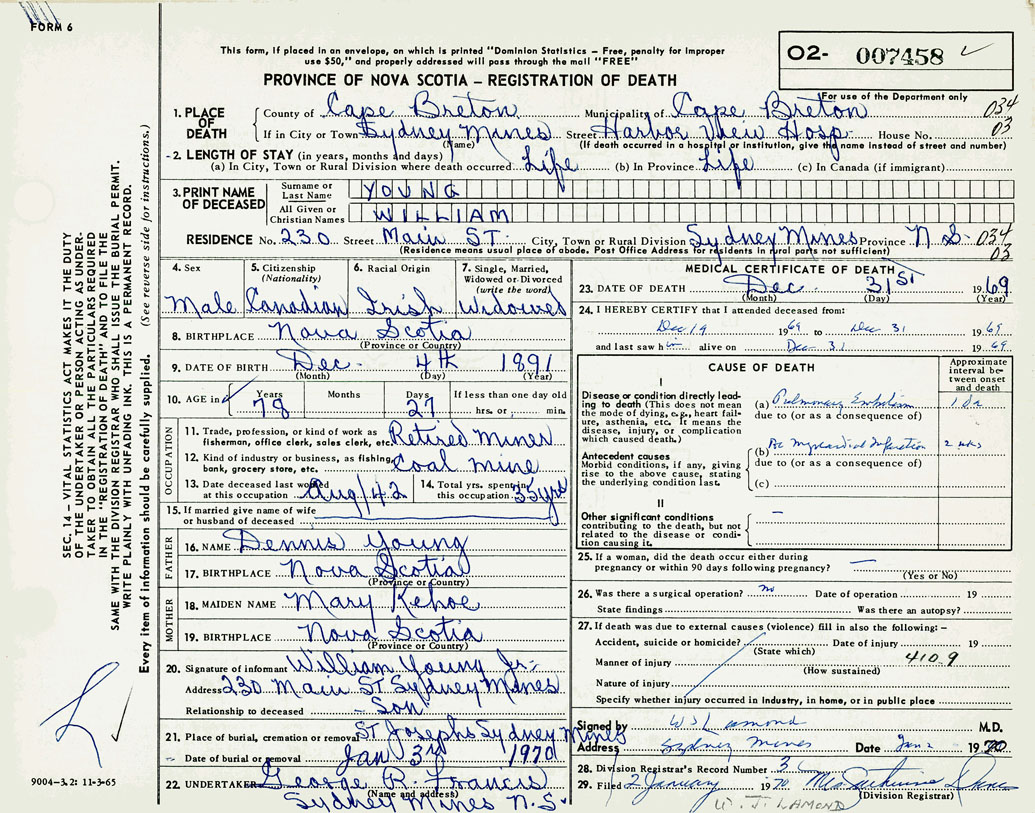 FORM 6
This form, if placed in an envelope, on which is printed "Dominion Statistics – Free, penalty for improper
use $50," and properly addressed will pass through the mail "FREE"
O2- 007458
PROVINCE OF NOVA SCOTIA – REGISTRATION OF DEATH
For use of the Department only
034
03
1. PLACE OF DEATH
County of Cape Breton Municipality of Cape Breton
If in City or Town Sydney Mines Street Harbor View Hosp. House No.
(Name) (If death occurred in a hospital or Institution, give the name instead of street and number)
2. LENGTH OF STAY (in years, months and days)
(a) In City, Town or Rural Division where death occurred Life (b) In Province Life (c) In Canada (if immigrant)
3. PRINT NAME OF DECEASED
Surname or Last Name YOUNG
All Given or Christian Names WILLIAM
RESIDENCE No. 230 Street Main ST. City, Town or Rural Division Sydney Mines Province N.S. 034
03
(Residence means usual place of abode. Post Office Address for residents in rural parts not sufficient)
4. Sex Male
5. Citizenship (Nationality) Canadian
6. Racial Origin Irish
7. Single, Married, Widowed or Divorced (write the word) Widowed
8. BIRTHPLACE Nova Scotia
(Province or Country)
9. DATE OF BIRTH Dec. 4th 1891
(Month) (Day) (Year)
10. AGE in 78 Months Days 27 If less than one day old
hrs. or min.
OCCUPATION
11. Trade, profession, or kind of work as fisherman, office clerk, sales clerk, etc. Retired Miner
12. Kind of industry or business, as fishing, bank, grocery store, etc. Coal Mine
13. Date deceased last worked at this occupation Aug/42 14. Total yrs. spent in this occupation 35 yrs
15. If married give name of wife or husband of deceased
FATHER
16. NAME Dennis Young
17. BIRTHPLACE Nova Scotia
(Province or Country)
MOTHER
18. MAIDEN NAME Mary Kehoe
19. BIRTHPLACE Nova Scotia
(Province or Country)
20. Signature of informant William Young Jr.
Address 230 Main ST Sydney Mines
Relationship to deceased Son
21. Place of burial, cremation or removal ST Josephs Sydney Mines
Date of burial or removal Jan 3rd 1970
22. UNDERTAKER George R. Francis
(Name and address)
Sydney Mines N.S.
MEDICAL CERTIFICATE OF DEATH
23. DATE OF DEATH Dec. 31st 1969
(Month) (Day) (Year)
24. I HEREBY CERTIFY that I attended deceased from:
Dec 19 1969 to Dec 31 1969
and last saw him alive on Dec 31 1969
CAUSE OF DEATH
Approximate interval between onset and death
I
Disease or condition directly leading to death (This does not mean the mode of dying, e.g., heart failure, asthenia, etc. It means the disease, injury, or complication which caused death.)
(a) Pulmonary Embolism
due to (or as a consequence of)
Antecedent causes
Morbid conditions, if any, giving rise to the above cause, stating the underlying condition last.
(b) Ac Myocardial Infarction 2 wks
due to (or as a consequence of)
(c)
II
Other significant conditions contributing to the death, but not related to the disease or condition causing it.
25. If a woman, did the death occur either during pregnancy or within 90 days following pregnancy?
(Yes or No)
26. Was there a surgical operation? no Date of operation 19
State findings Was there an autopsy?
27. If death was due to external causes (violence) fill in also the following:–
Accident, suicide or homicide? Date of injury 19
(State which)
Manner of injury 410.9
(How sustained)
Nature of injury
Specify whether injury occurred in Industry, in home, or in public place
Signed by W J Lamond M.D.
Address Sydney Mines Date Jan 2 1970
28. Division Registrar's Record Number 3
29. Filed 2 January 1970
(Division Registrar)
W. J. LAMOND
SEC. 14 – VITAL STATISTICS ACT MAKES IT THE DUTY
OF THE UNDERTAKER OR PERSON ACTING AS UNDER-
TAKER TO OBTAIN ALL THE PARTICULARS REQUIRED
IN THE "REGISTRATION OF DEATH" AND TO FILE THE
SAME WITH THE DIVISION REGISTRAR WHO SHALL ISSUE THE BURIAL PERMIT.
WRITE PLAINLY WITH UNFADING INK. THIS IS A PERMANENT RECORD.
Every item of information should be carefully supplied. (See reverse side for instructions.)
9004-3.2: 11-3-65